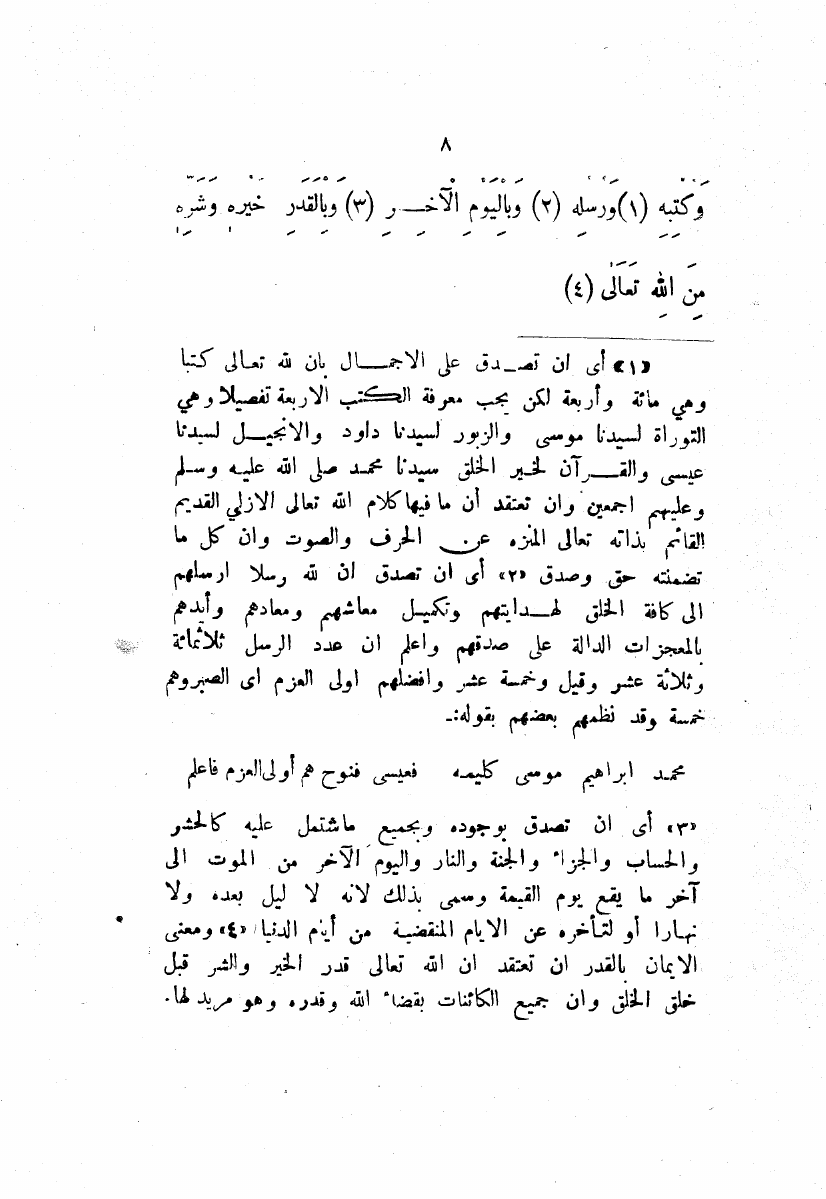 ٨
وَكُتُبِهِ (١) وَرُسُلِهِ (٢) وَبِالْيَوْمِ الْآخِـــرِ (٣) وَبِالْقَدَرِ خَيْرِهِ وَشَرِّهِ
مِنَ اللهِ تَعَالَى (٤)
«١» أى ان تصـدق على الاجمــال بان لله تعالى كتبا
وهي مائة وأربعة لكن يجب معرفة الكتب الاربعة تفصيلا وهي
التوراة لسيدنا موسى والزبور لسيدنا داود والانجيــل لسيدنا
عيسى والقــرآن لخير الخلق سيدنا محمد صلى الله عليه وسلم
وعليهم اجمعين وان تعتقد أن ما فيها كلام الله تعالى الازلي القديم
القائم بذاته تعالى المنزه عن الحرف والصوت وان كل ما
تضمنته حق وصدق «٢» أى ان تصدق ان لله رسلا ارسلهم
الى كافة الخلق لهـدايتهم وتكميل معاشهم ومعادهم وأيدهم
بالمعجزات الدالة على صدقهم واعلم ان عدد الرسل ثلاثمائة
وثلاثة عشر وقيل وخمسة عشر وافضلهم اولى العزم اى الصبر وهم
خمسة وقد نظمهم بعضهم بقوله:ـ
محمد ابراهيم موسى كليمه فعيسى فنوح هم أولى العزم فاعلم
«٣» أى ان تصدق بوجوده وبجميع ماشتمل عليه كالحشر
والحساب والجزاء والجنة والنار واليوم الآخر من الموت الى
آخر ما يقع يوم القيمة وسمى بذلك لانه لا ليل بعده ولا
نهارا أو لتأخره عن الايام المنقضية من أيام الدنيا «٤» ومعنى
الايمان بالقدر ان تعتقد ان الله تعالى قدر الخير والشر قبل
خلق الخلق وان جميع الكائنات بقضاء الله وقدره وهو مريد لها.